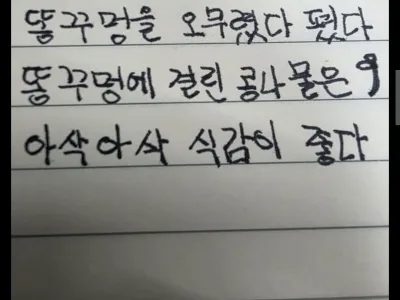 똥꾸멍을 오무렸다 폈다
똥꾸멍에 걸린 콩나물은
아삭아삭 식감이 좋다